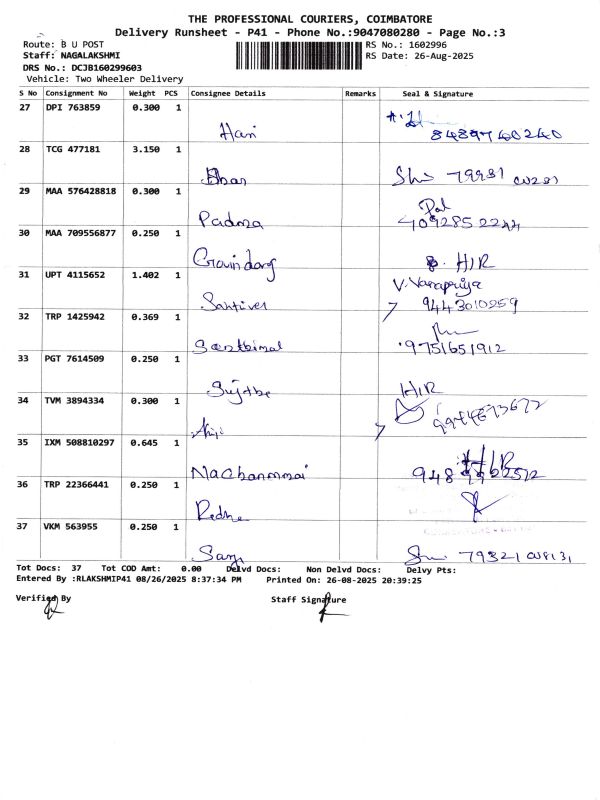 THE PROFESSIONAL COURIERS, COIMBATORE
Delivery Runsheet - P41 - Phone No.:9047080280 - Page No.:3
Route: B U POST
RS No.: 1602996
Staff: NAGALAKSHMI
RS Date: 26-Aug-2025
DRS No.: DCJB160299603
Vehicle: Two Wheeler Delivery
S No Consignment No Weight PCS Consignee Details Remarks Seal & Signature
27 DPI 763859 0.300 1
Hari
84897 60240
28 TCG 477181 3.150 1
79931
29 MAA 576428818 0.300 1
Padma
30 MAA 709556877 0.250 1
Govindaraj
HIR
31 UPT 4115652 1.402 1
V. Vanapriya
Saktivel
9443010259
32 TRP 1425942 0.369 1
9751651912
33 PGT 7614509 0.250 1
HIR
34 TVM 3894334 0.300 1
35 IXM 508810297 0.645 1
36 TRP 22366441 0.250 1
37 VKM 563955 0.250 1
79321
Tot Docs: 37 Tot COD Amt: 0.00 Delvd Docs: Non Delvd Docs: Delvy Pts:
Entered By :RLAKSHMIP41 08/26/2025 8:37:34 PM Printed On: 26-08-2025 20:39:25
Verified By Staff Signature